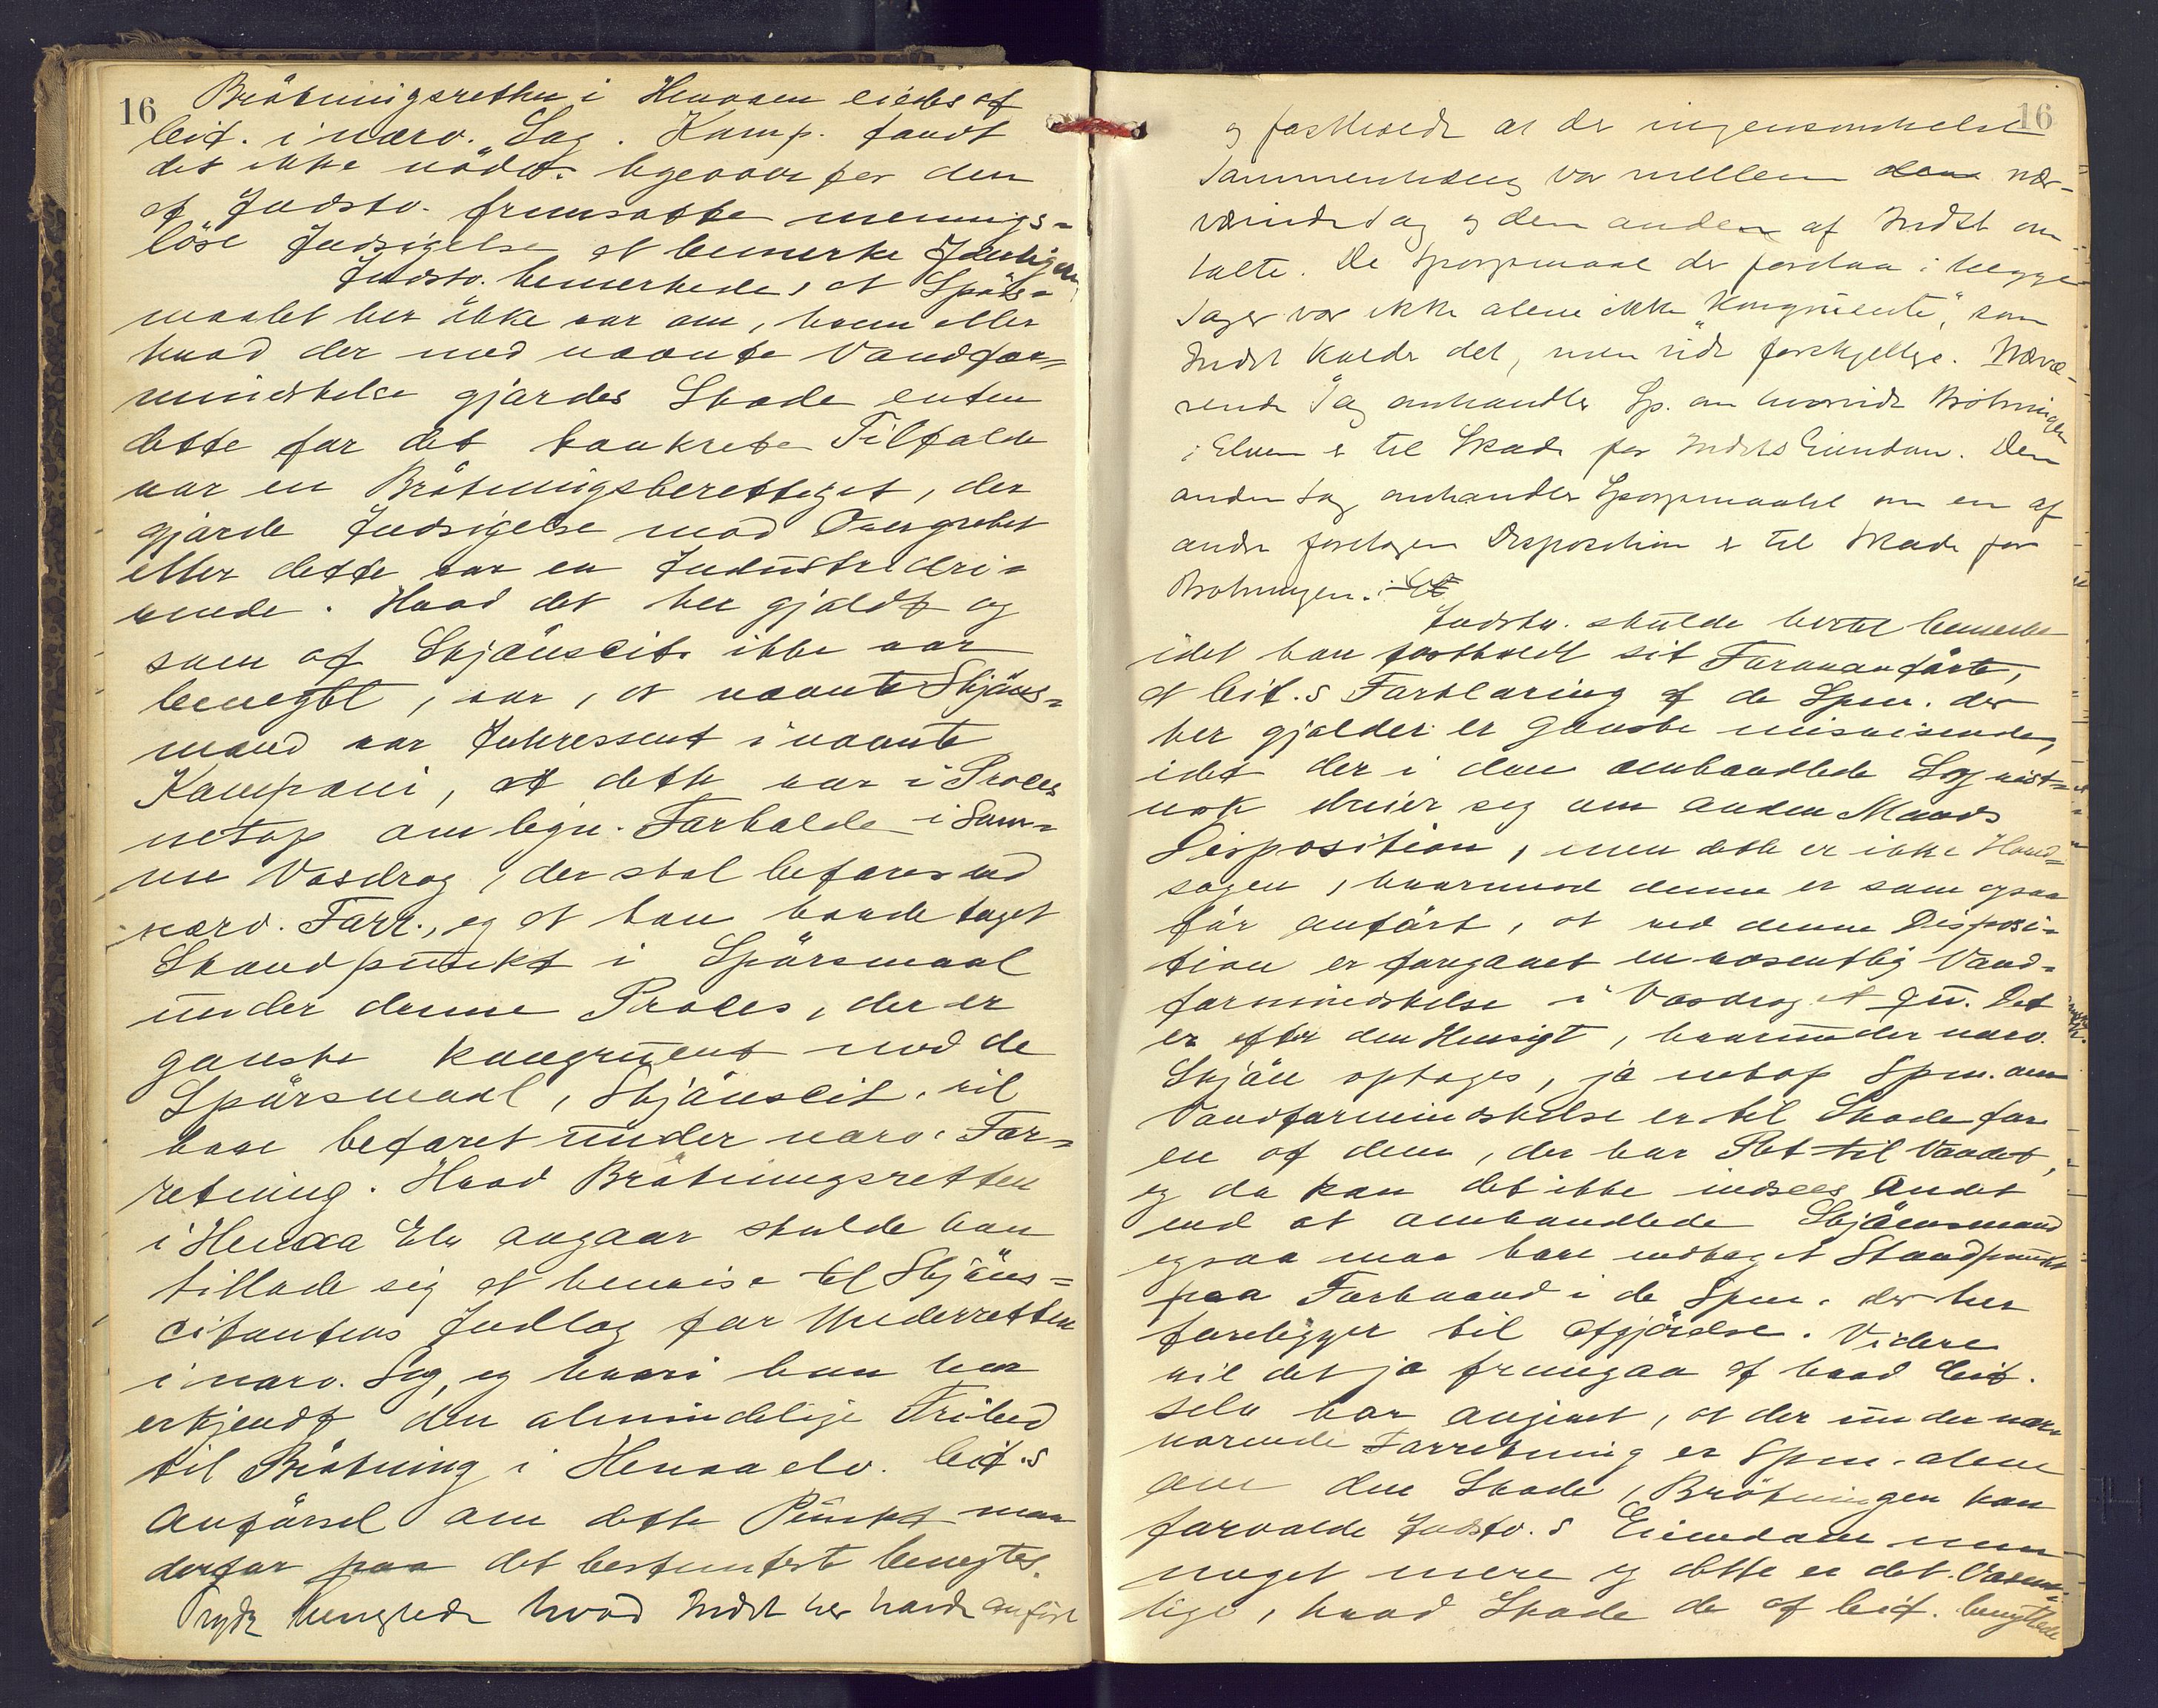 16
Brötningsretten i Henoaen eiedes af
Cit. i nærv. Sag. Komp. fandt
det ikke nödv. ligeoverfor den
af Indstv. fremsatte menings-
löse Indsigelse at bemerke
Indstv. bemerkede, at Spörs-
maalet her ikke var om, hvem eller
hvad der med nævnte Vandfor-
mindskelse gjordes Skade enten
dette for det konkrete Tilfælde
var en Brötningsberettiget, der
gjorde Indsigelse mod Overgrebet
eller dette var en Industridri-
vende. Hvad det her gjaldt og
som af Skjönscit. ikke var
benegtet, var, at nævnte Skjöns-
mand var Interessent i nævnte
Kompani, at dette var i Proces
netop om lign. Forholde i Sam-
me Vasdrag, der skal befares ved
nærv. Forr., og at han havde taget
Standpunkt i Spörsmaal
under denne Proces, der er
ganske kongruent med de
Spörsmaal, Skjönscit. vil
have befaret under nærv. For-
retning. Hvad Brötningsretten
i Henoaa Elv angaar skulde han
tillade sig at henvise til Skjöns-
citantens Indlæg for Underretten
i nærv. Sag, og hvori han har
erkjendt den almindelige Frihed
til Brötning i Henoaaelv. Cit.s
Anförsel om dette Punkt maa
derfor paa det bestemteste benegtes.
Prydz benegtede hvad Indst her havde anfört
16
og fastholdt at der ingensomhelst
Sammenhæng var mellem den nær-
værende Sag og den anden af Indst om-
talte. De Sporgsmaal der forelaa i begge
Sager var ikke alene ikke "kongruente", som
Indst kalder det, men vidt forskjellige. Nærvæ-
rende Sag omhandler Sp. om hvorvidt Brötningen
i Elven er til Skade for Indsts Eiendom. Den
anden Sag omhandler Sporgsmaalet om en af
andre foretagen Disposition er til Skade for
Brotningen.
Indstv. skulde hertil bemerke
idet han fastholdt sit Foranforte,
at Cit.s Forklaring af de Spm. der
her gjælder er ganske misvisende,
idet der i den omhandlede Sag vist-
nok dreier seg om anden Mands
Disposition, men dette er ikke Hoved-
sagen, hvormod denne er som ogsaa
för anfört, at ved denne Disposi-
tion er foregaaet en væsentlig Vand-
formindskelse i Vasdraget qu. Det
er efter den Hensigt, hvorunder nærv.
Skjön optages, ja netop Spm. om
Vandformindskelse er til Skade for
en af dem, der har Ret til Vandet,
og da kan det ikke indsees Andet
end at omhandlede Skjönsmand
ogsaa maa have indtaget Standpunkt
paa Forhaand i de Spm. der her
foreligger til Afgjörelse. Videre
vil det jo fremgaa af hvad Cit.
selv har angivet, at der under nær-
værende Forretning er Spm. alene
om den Skade, Brötningen kan
forvolde Indstv.s Eiendom men
noget mere og dette er det Væsent-
lige, hvad Skade de af Cit. benyttede